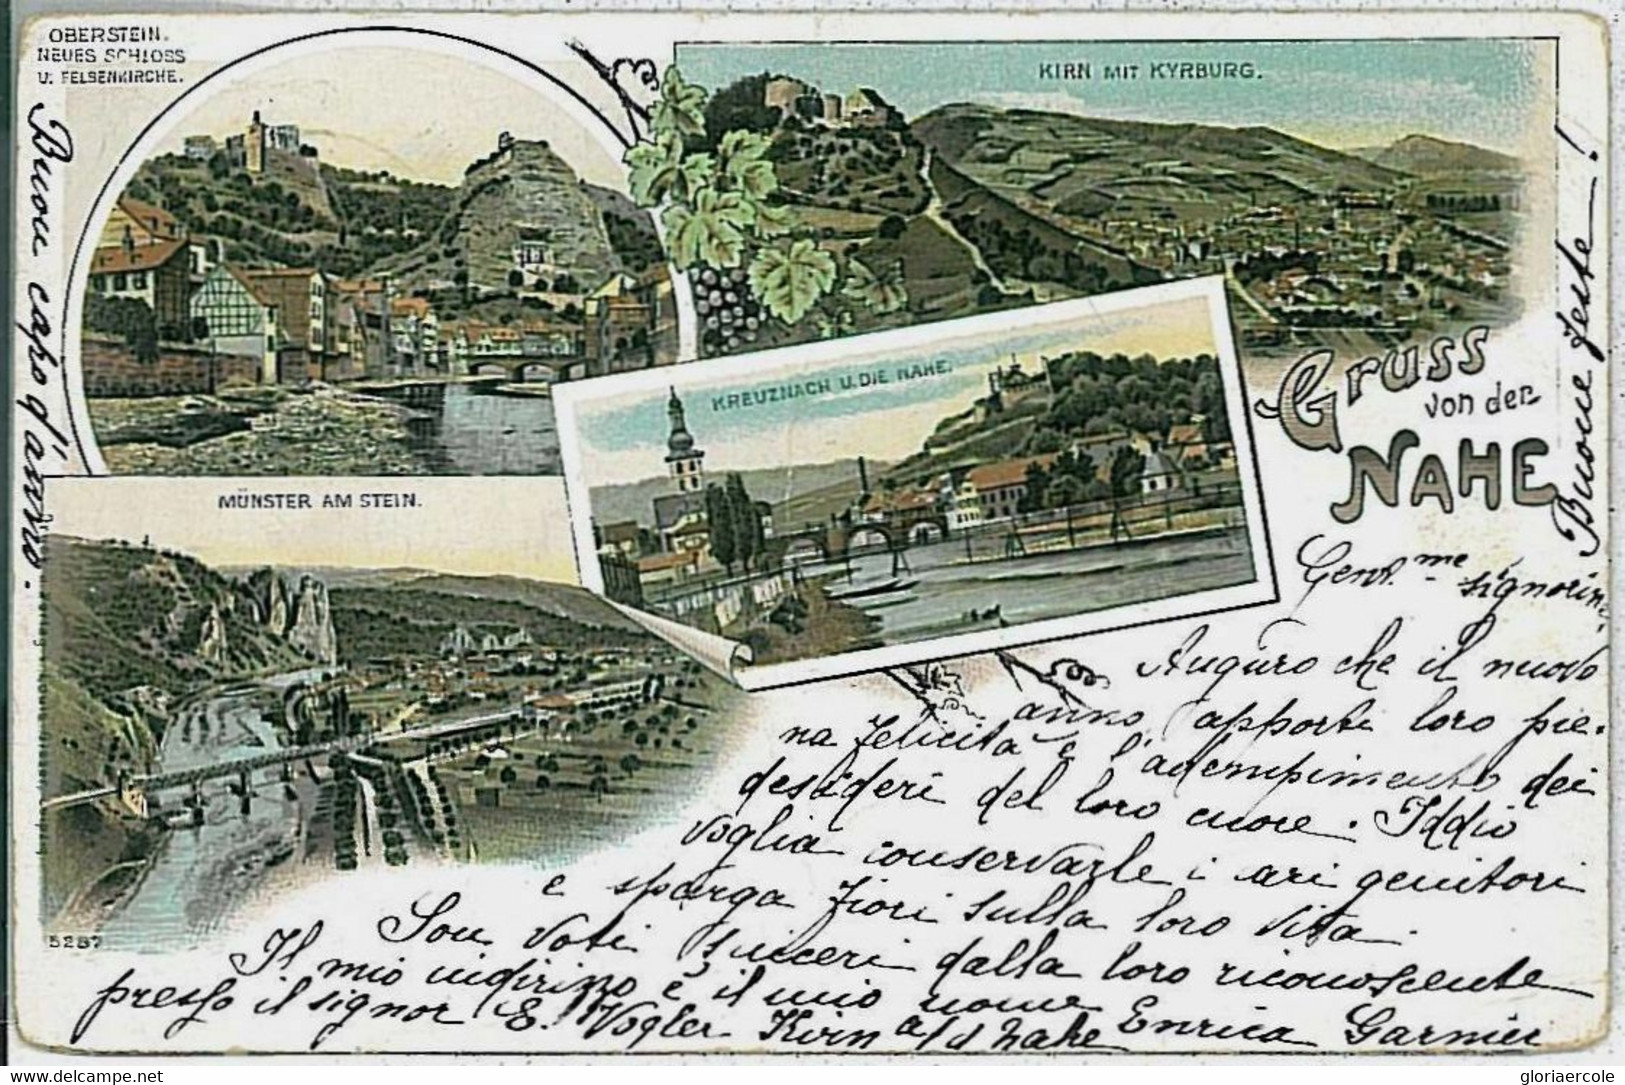 OBERSTEIN.
NEUES SCHLOSS
U. FELSENKIRCHE.
KIRN MIT KYRBURG.
KREUZNACH U. DIE NAHE.
MÜNSTER AM STEIN.
Gruss
von der
NAHE
5287
Buon capo d'anno.
Buone feste!
Gent.me signorin
Auguro che il nuovo
anno apporti loro pie-
na felicità e l'adempimento dei
desideri del loro cuore. Iddio
voglia conservarle i cari genitori
e sparga fiori sulla loro vita.
Son voti sinceri dalla loro riconoscente
Il mio indirizzo è il mio nome Enrica Garnier
presso il signor E. Vogler Kirn a/d Nahe
gloriaercole